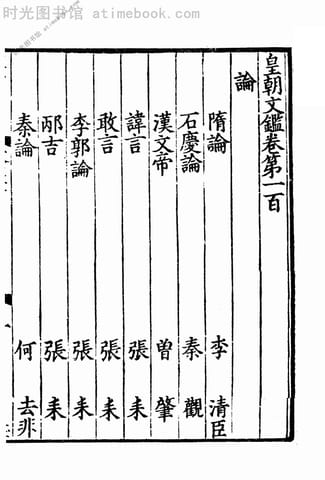 时光图书馆 - atimebook.com
皇朝文鑑卷第一百
論
隋論 李清臣
石慶論 秦觀
漢文帝 曾肇
諱言 張耒
敢言 張耒
李郭論 張耒
邴吉 張耒
秦論 何去非
时光图书馆 - atimebook.com